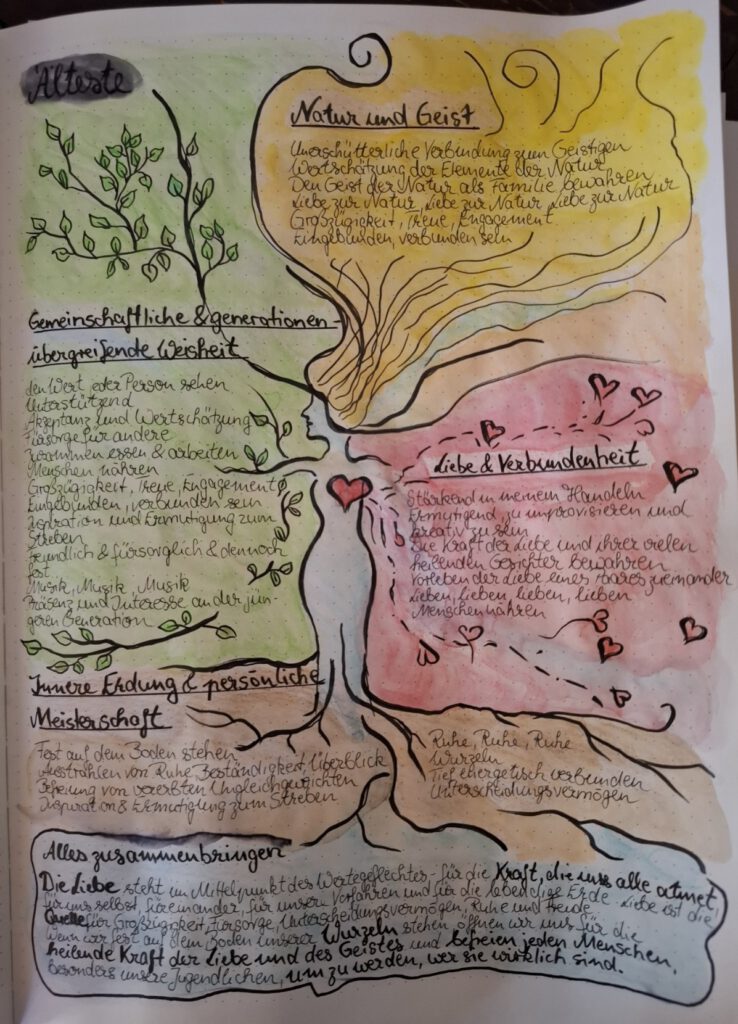 Älteste
Natur und Geist
Unerschütterliche Verbindung zum Geistigen
Wertschätzung der Elemente der Natur
Den Geist der Natur als Familie bewahren
Liebe zur Natur, Liebe zur Natur, Liebe zur Natur
Großzügigkeit, Treue, Engagement
Eingebunden, verbunden sein
Gemeinschaftliche & generationen-
übergreifende Weisheit
den Wert jeder Person sehen
Unterstützend
Akzeptanz und Wertschätzung
Fürsorge für andere
zusammen essen & arbeiten
Menschen nähren
Großzügigkeit, Treue, Engagement
Eingebunden, verbunden sein
Inspiration und Ermutigung zum
Streben
freundlich & fürsorglich & dennoch
fest
Musik, Musik, Musik
Präsenz und Interesse an der jün-
geren Generation
Liebe & Verbundenheit
Stärkend in meinem Handeln
Ermutigend, zu improvisieren und
kreativ zu sein
Die Kraft der Liebe und ihrer vielen
heilenden Gesichter bewahren
Vorleben der Liebe eines Paares zueinander
Lieben, lieben, lieben, lieben
Menschen nähren
Innere Erdung & persönliche
Meisterschaft
Fest auf dem Boden stehen
Ausstrahlen von Ruhe, Beständigkeit, Überblick
Befreiung von vererbten Ungleichgewichten
Inspiration & Ermutigung zum Streben
Ruhe, Ruhe, Ruhe
Wurzeln
Tief energetisch verbunden
Unterscheidungsvermögen
Alles zusammenbringen
Die Liebe steht im Mittelpunkt des Wertegeflechtes - für die Kraft, die uns alle atmet,
für uns selbst, füreinander, für unsere Vorfahren und für die lebendige Erde. Liebe ist die
Quelle für Großzügigkeit, Fürsorge, Unterscheidungsvermögen, Ruhe und Freude.
Wenn wir fest auf dem Boden unserer Wurzeln stehen, öffnen wir uns für die
heilende Kraft der Liebe und des Geistes und befreien jeden Menschen,
besonders unsere Jugendlichen, um zu werden, wer sie wirklich sind.